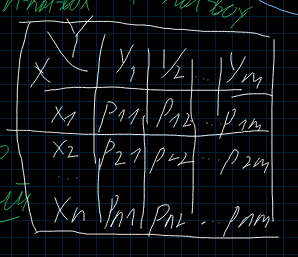 Y
X y1 y2 ... ym
x1 p11 p12 ... p1m
x2 p21 p22 ... p2m
...
xn pn1 pn2 ... pnm